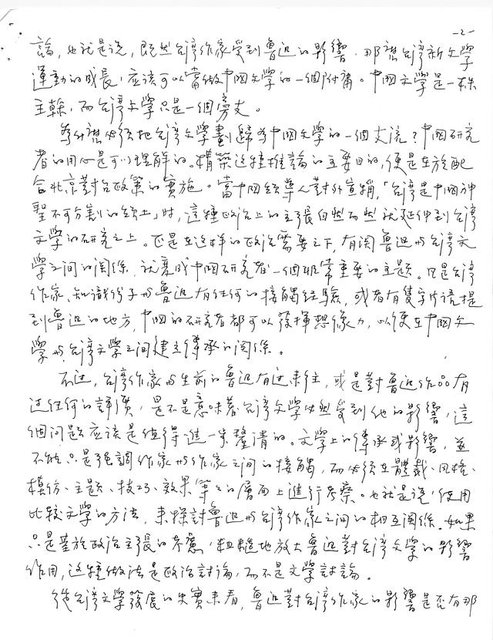 -2-
論，也就是說，既然台灣作家受到魯迅的影響，那麼台灣新文學
運動的成長，應該可以當做中國文學的一個附庸。中國文學是一株
主幹，而台灣文學只是一個旁支。
為什麼必須把台灣文學劃歸為中國文學的一個支流？中國研究
者的用心是可以理解的。構築這種推論的主要目的，便是在於配
合北京對台政策的實施。當中國領導人對外宣稱，「台灣是中國神
聖不可分割的領土」時，這種政治上的主張自然而然就延伸到台灣
文學的研究之上。正是在這樣的政治需要之下，有關魯迅與台灣文
學之間的關係，就變成中國研究者一個非常重要的主題。凡是台灣
作家、知識份子與魯迅有任何的接觸經驗，或者有隻字片語提
到魯迅的地方，中國的研究者都可以發揮想像力，以便在中國文
學與台灣文學之間建立傳承的關係。
不過，台灣作家與生前的魯迅有過來往，或是對魯迅作品有
過任何的評價，是不是意味著台灣文學必然受到他的影響，這
個問題應該是值得進一步釐清的。文學上的傳承或影響，並
不能只是強調作家與作家之間的接觸，而必須在體裁、風格、
模仿、主題、技巧、效果等等的層面上進行考察。也就是說，使用
比較文學的方法，來探討魯迅與台灣作家之間的相互關係。如果
只是基於政治主張的考慮，粗糙地放大魯迅對台灣文學的影響
作用，這種做法是政治討論，而不是文學討論。
從台灣文學發展的史實來看，魯迅對台灣作家的影響是否有那